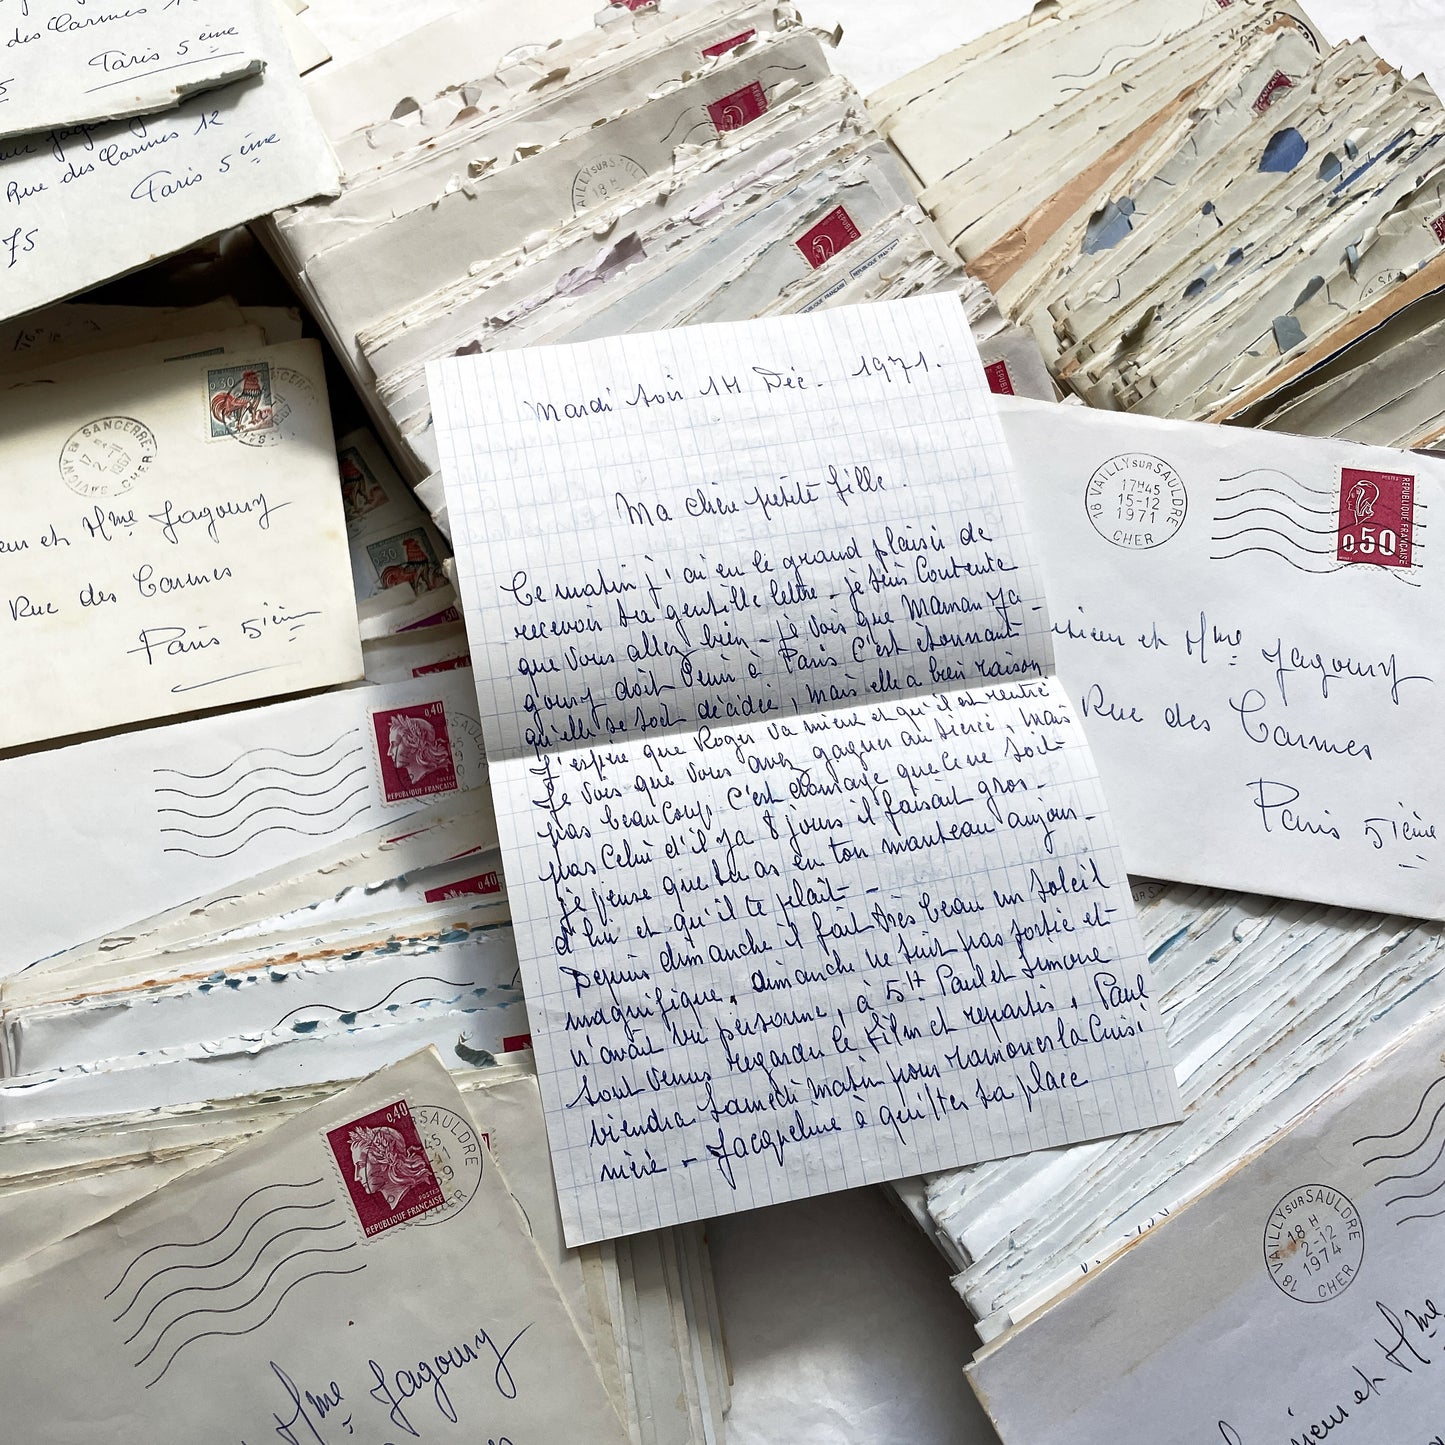 des Carmes
Paris 5 ème
Rue des Carmes 12
Paris 5 ème
75
REPUBLIQUE FRANÇAISE
REPUBLIQUE FRANÇAISE
0,30
SAVIGNY EN SANCERRE
17 H
2
1967
CHER
et Mme Jagoury
Rue des Carmes
Paris 5ième
0,30
0,40
POSTES
REPUBLIQUE FRANÇAISE
0,40
Mardi soir 14 Déc. 1971.
Ma chère petite fille.
Ce matin j'ai eu le grand plaisir de
recevoir ta gentille lettre - je suis Contente
que Vous allez bien - je Vois que Maman Ja-
goury doit Venir à Paris C'est étonnant
qu'elle se soit décidée, mais elle a bien raison
J'espère que Roger Va mieux et qu'il est rentré
Je Vois que Vous avez gagner au tiercé, mais
pas beaucoup C'est dommage que Ce ne soit
pas Celui d'il y a 8 jours il faisait gros -
je pense que tu as eu ton manteau aujour-
d'hui et qu'il te plait -
Depuis dimanche il fait très beau un soleil
magnifique, dimanche ne suit pas sortie et
n'avait vu personne, à 5H Paul et Simone
sont Venus regarder le Film et repartis, Paul
viendra Samedi matin pour ramoner la Cuisi
nière - Jacqueline à quitter sa place
18 VAILLY SUR SAULDRE
17H45
15-12
1971
CHER
POSTES
REPUBLIQUE FRANÇAISE
0,50
et Mme Jagoury
Rue des Carmes
Paris 5ième
0,40
POSTES
REPUBLIQUE FRANÇAISE
SAULDRE
CHER
Mme Jagoury
18 VAILLY SUR SAULDRE
18 H
2-12
1974
CHER
et Mme